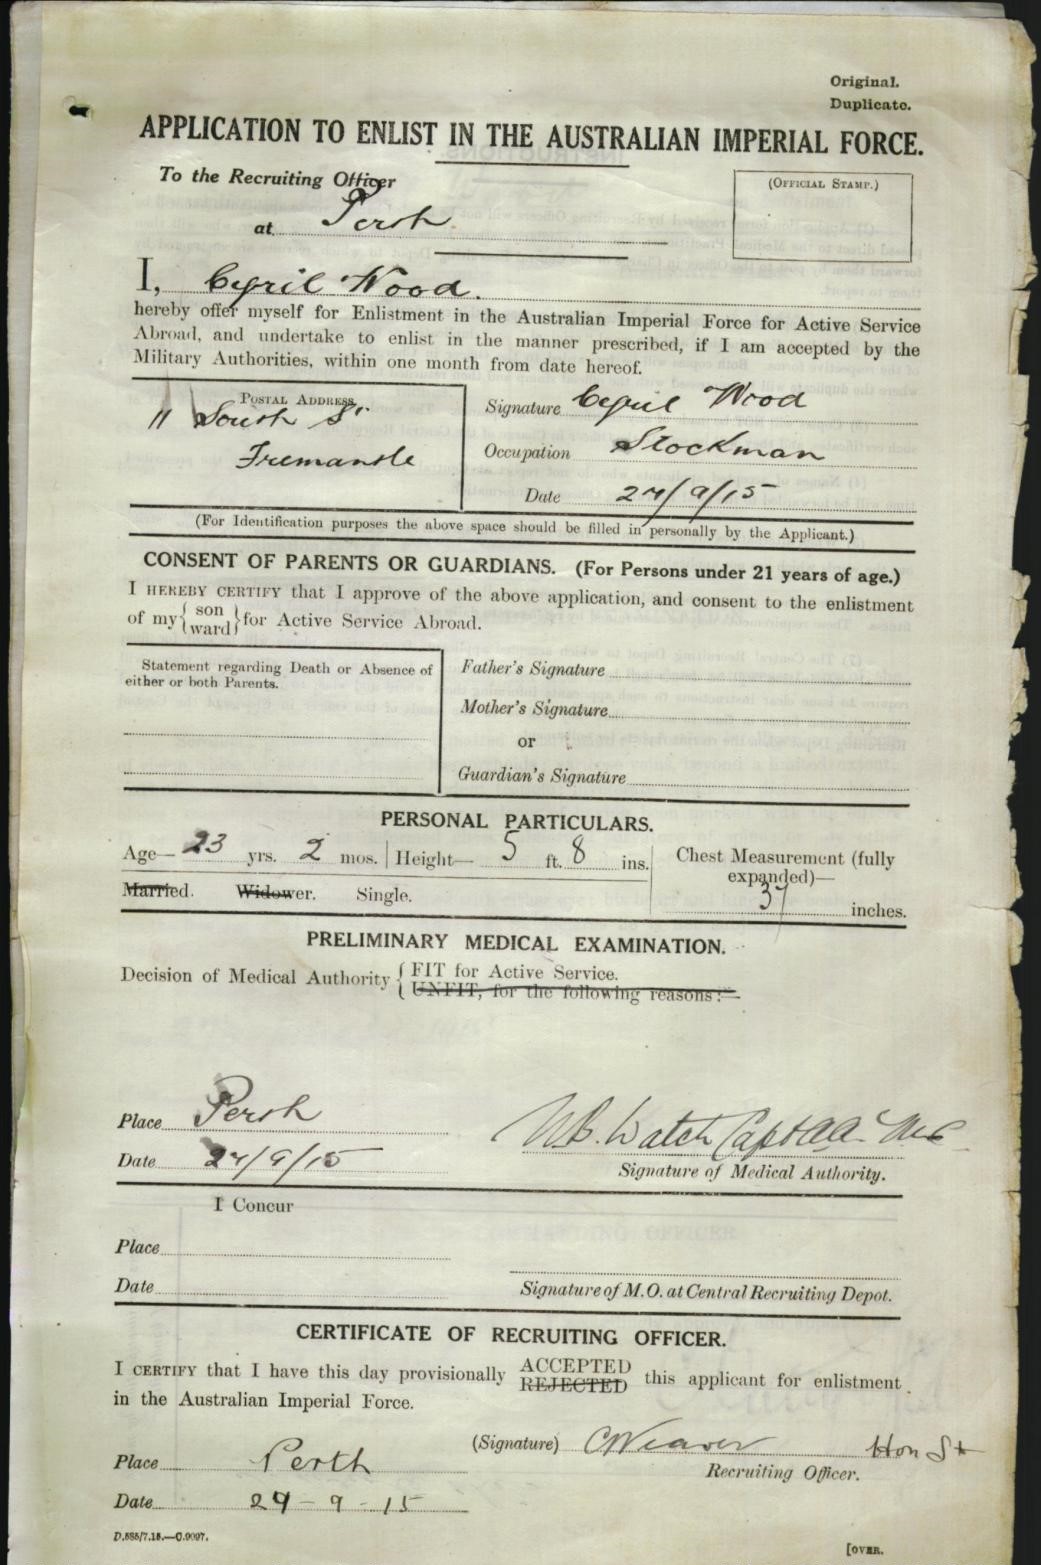 Original.
Duplicate.
APPLICATION TO ENLIST IN THE AUSTRALIAN IMPERIAL FORCE.
To the Recruiting Officer
(OFFICIAL STAMP.)
at Perth
I, Cyril Wood.
hereby offer myself for Enlistment in the Australian Imperial Force for Active Service
Abroad, and undertake to enlist in the manner prescribed, if I am accepted by the
Military Authorities, within one month from date hereof.
POSTAL ADDRESS.
11 South St
Fremantle
Signature Cyril Wood
Occupation Stockman
Date 27/9/15
(For Identification purposes the above space should be filled in personally by the Applicant.)
CONSENT OF PARENTS OR GUARDIANS. (For Persons under 21 years of age.)
I HEREBY CERTIFY that I approve of the above application, and consent to the enlistment
of my { son ward } for Active Service Abroad.
Statement regarding Death or Absence of
either or both Parents.
Father's Signature
Mother's Signature
or
Guardian's Signature
PERSONAL PARTICULARS.
Age— 23 yrs. 2 mos. Height— 5 ft. 8 ins.
Chest Measurement (fully
expanded)—
37
inches.
Married. Widower. Single.
PRELIMINARY MEDICAL EXAMINATION.
Decision of Medical Authority { FIT for Active Service.
UNFIT, for the following reasons:—
Place Perth
Date 27/9/15
Capt
Signature of Medical Authority.
I Concur
Place
Date
Signature of M.O. at Central Recruiting Depot.
CERTIFICATE OF RECRUITING OFFICER.
I CERTIFY that I have this day provisionally ACCEPTED REJECTED this applicant for enlistment
in the Australian Imperial Force.
(Signature) C Weaver Hon Lt
Recruiting Officer.
Place Perth
Date 29-9-15
D.585/7.15.—C.9097.
[OVER.